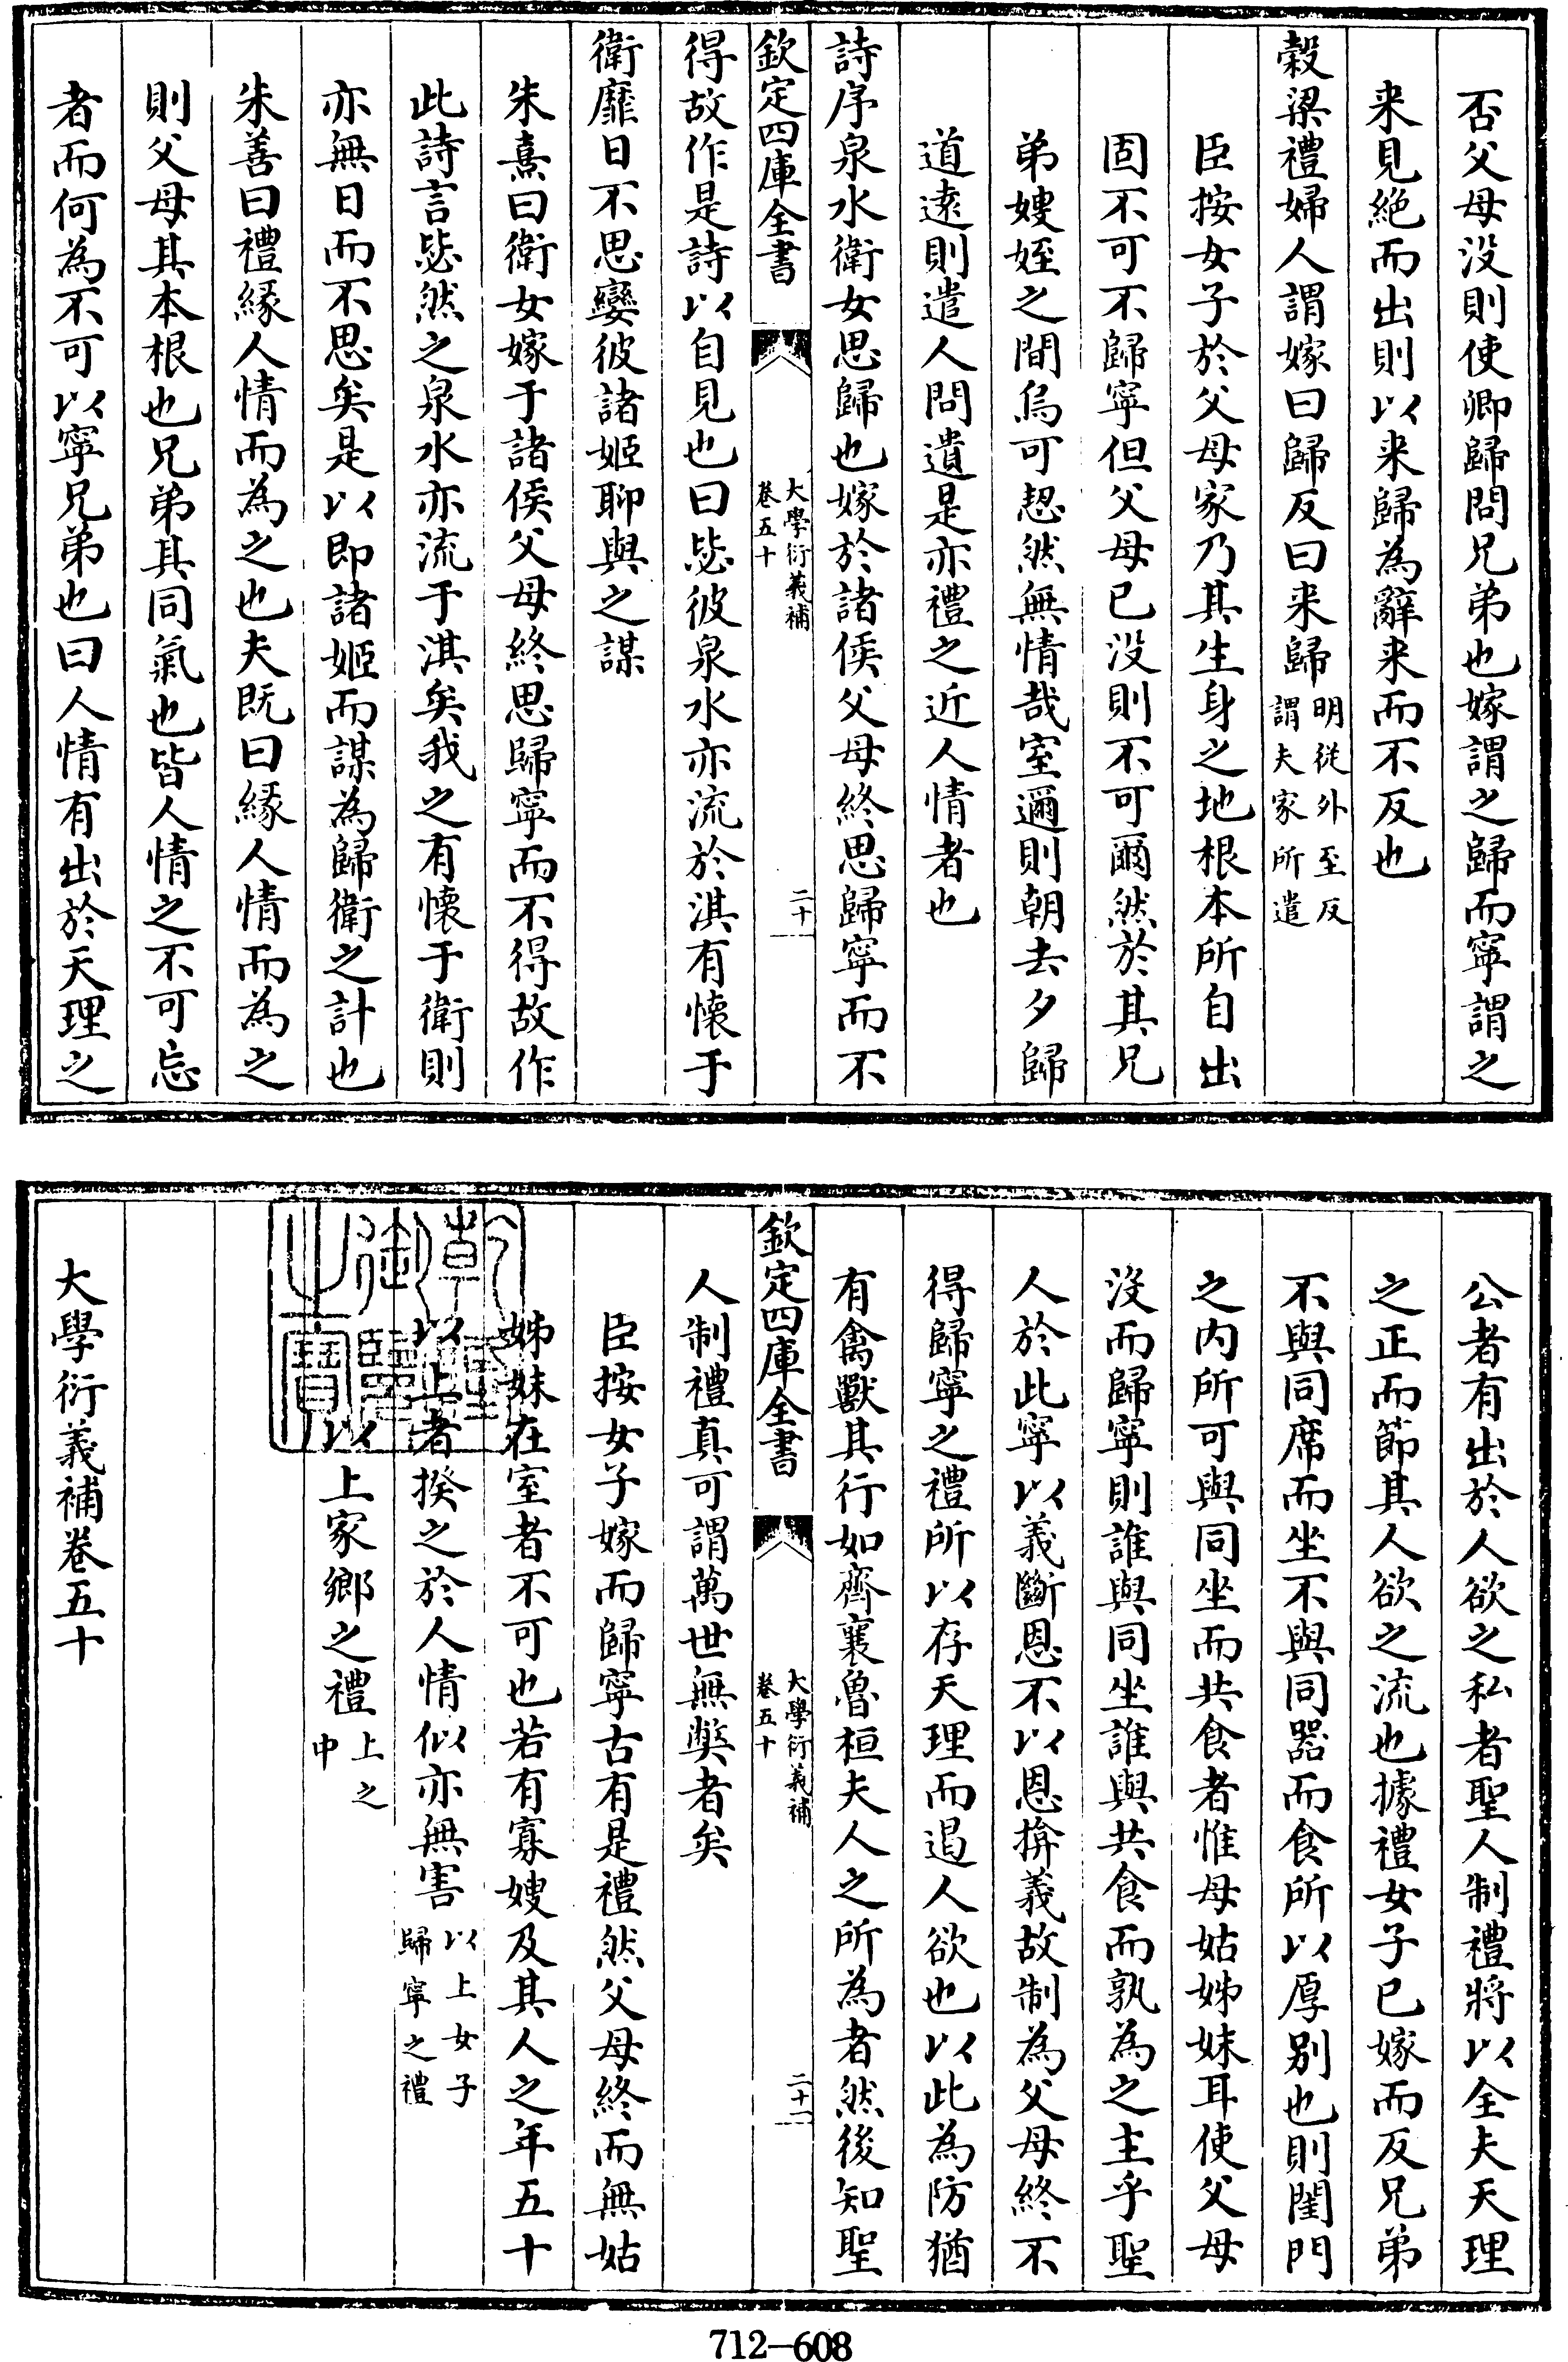 否父母没則使卿歸問兄弟也嫁謂之歸而寧謂之
来見絶而出則以来歸為辭来而不反也
穀梁禮婦人謂嫁曰歸反曰来歸明從外至反謂夫家所遣
臣按女子於父母家乃其生身之地根本所自出
固不可不歸寧但父母已没則不可爾然於其兄
弟嫂姪之間烏可恝然無情哉室邇則朝去夕歸
道逺則遣人問遺是亦禮之近人情者也
詩序泉水衛女思歸也嫁於諸侯父母終思歸寧而不
欽定四庫全書
大學衍義補
卷五十
二十
得故作是詩以自見也曰毖彼泉水亦流於淇有懐于
衛靡日不思孌彼諸姬聊與之謀
朱熹曰衛女嫁于諸侯父母終思歸寧而不得故作
此詩言毖然之泉水亦流于淇矣我之有懐于衛則
亦無日而不思矣是以即諸姬而謀為歸衛之計也
朱善曰禮緣人情而為之也夫既曰緣人情而為之
則父母其本根也兄弟其同氣也皆人情之不可忘
者而何為不可以寧兄弟也曰人情有出於天理之
公者有出於人欲之私者聖人制禮將以全夫天理
之正而節其人欲之流也據禮女子已嫁而反兄弟
不與同席而坐不與同器而食所以厚别也則閨門
之内所可與同坐而共食者惟母姑姊妹耳使父母
没而歸寧則誰與同坐誰與共食而孰為之主乎聖
人於此寧以義斷恩不以恩揜義故制為父母終不
得歸寧之禮所以存天理而遏人欲也以此為防猶
有禽獸其行如齊襄魯桓夫人之所為者然後知聖
欽定四庫全書
大學衍義補
卷五十
二十一
人制禮真可謂萬世無弊者矣
臣按女子嫁而歸寧古有是禮然父母終而無姑
姊妹在室者不可也若有寡嫂及其人之年五十
以上者揆之於人情似亦無害以上女子歸寧之禮
以上家鄉之禮上之中
乾隆御覽之寶
大學衍義補卷五十
712-608